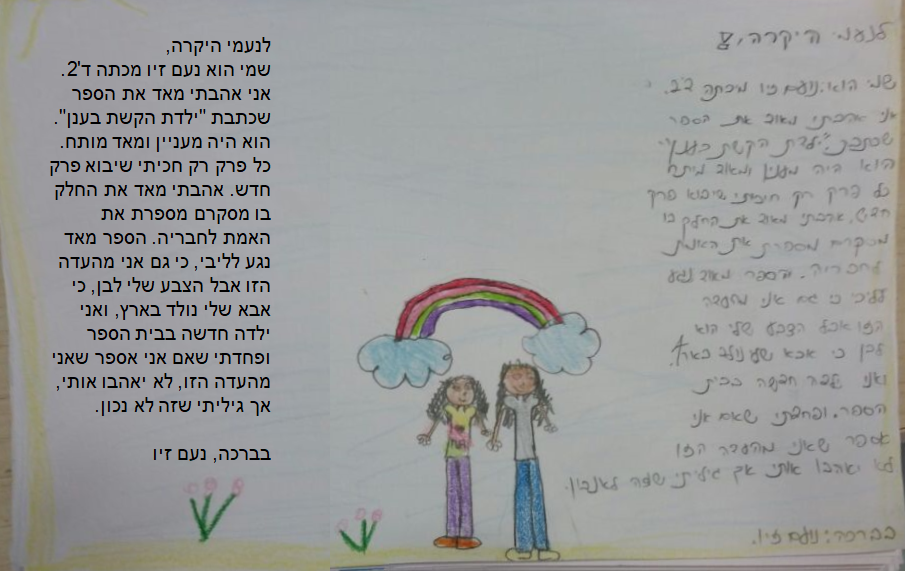 לנעמי היקרה,
שמי הוא: נועם זיו מכתה ד'2.
אני אהבתי מאוד את הספר
שכתבת: "ילדת הקשת בענן"
הוא היה מענין ומאוד מיתח
כל פרק רק חיכיתי שיבוא פרק
חדש, אהבתי מאוד את החלק בו
מסקרם מספרת את האמת
לחבריה. הספר מאוד נגע
לליבי כי גם אני מהעדה
הזו אבל הצבע שלי הוא
לבן כי אבא שלי נולד בארץ.
ואני ילדה חדשה בבית
הספר. ופחדתי שאם אני
אספר שאני מהעדה הזו
לא יאהבו אותי אך גיליתי שזה לא נכון.
בברכה: נועם זיו.
לנעמי היקרה,
שמי הוא נעם זיו מכתה ד'2.
אני אהבתי מאד את הספר
שכתבת "ילדת הקשת בענן".
הוא היה מעניין ומאד מותח.
כל פרק רק חכיתי שיבוא פרק
חדש. אהבתי מאד את החלק
בו מסקרם מספרת את
האמת לחבריה. הספר מאד
נגע לליבי, כי גם אני מהעדה
הזו אבל הצבע שלי לבן, כי
אבא שלי נולד בארץ, ואני
ילדה חדשה בבית הספר
ופחדתי שאם אני אספר שאני
מהעדה הזו, לא יאהבו אותי,
אך גיליתי שזה לא נכון.
בברכה, נעם זיו